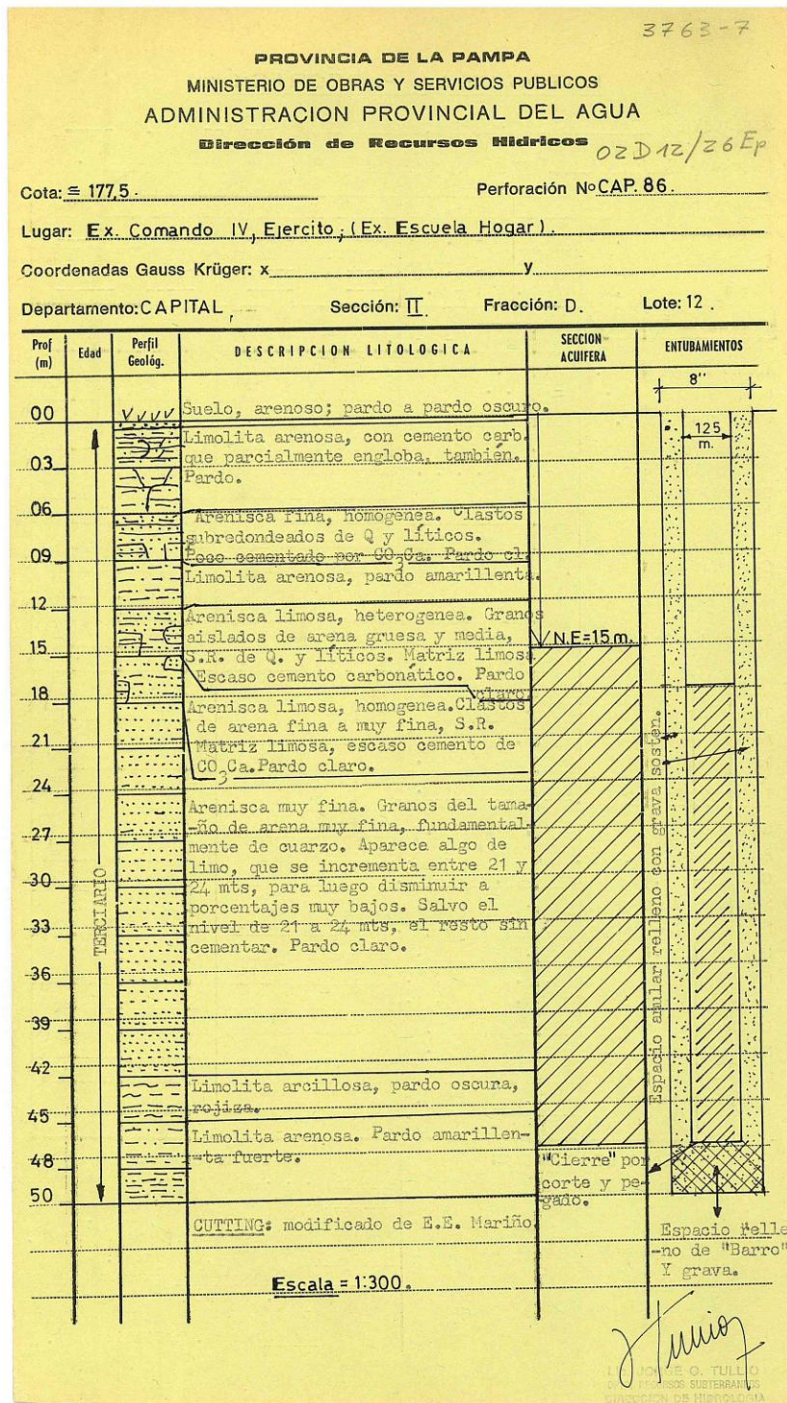 3763-7
PROVINCIA DE LA PAMPA
MINISTERIO DE OBRAS Y SERVICIOS PUBLICOS
ADMINISTRACION PROVINCIAL DEL AGUA
Dirección de Recursos Hídricos
02D12/26 Ep
Cota: ≅ 177,5.
Perforación Nº CAP. 86.
Lugar: Ex. Comando IV, Ejercito; (Ex. Escuela Hogar).
Coordenadas Gauss Krüger: x y
Departamento: CAPITAL, Sección: II Fracción: D. Lote: 12.
Prof (m)
Edad
Perfil Geológ.
DESCRIPCION LITOLOGICA
SECCION ACUIFERA
ENTUBAMIENTOS
8"
125 m.
00
03
06
09
12
15
18
21
24
27
30
33
36
39
42
45
48
50
TERCIARIO
Suelo, arenoso; pardo a pardo oscuro.
Limolita arenosa, con cemento carb.
que parcialmente engloba, también.
Pardo.
Arenisca fina, homogenea. Clastos
subredondeados de Q y líticos.
Poco cementado por CO3Ca. Pardo cl.
Limolita arenosa, pardo amarillenta.
Arenisca limosa, heterogenea. Granos
aislados de arena gruesa y media,
S.R. de Q. y líticos. Matriz limosa
Escaso cemento carbonático. Pardo
claro
Arenisca limosa, homogenea.Clastos
de arena fina a muy fina, S.R.
Matriz limosa, escaso cemento de
CO3Ca.Pardo claro.
Arenisca muy fina. Granos del tama-
-ño de arena muy fina, fundamental-
mente de cuarzo. Aparece algo de
limo, que se incrementa entre 21 y
24 mts, para luego disminuir a
porcentajes muy bajos. Salvo el
nivel de 21 a 24 mts, el resto sin
cementar. Pardo claro.
Limolita arcillosa, pardo oscura,
rojiza.
Limolita arenosa. Pardo amarillen-
-ta fuerte.
CUTTING: modificado de E.E. Mariño.
Escala = 1:300.
N.E=15 m.
"Cierre" por
corte y pe-
gado.
Espacio anular relleno con grava sosten.
Espacio relle
-no de "Barro"
Y grava.
JORGE O. TULLIO
RECURSOS SUBTERRANEOS
DIRECCION DE HIDROLOGIA